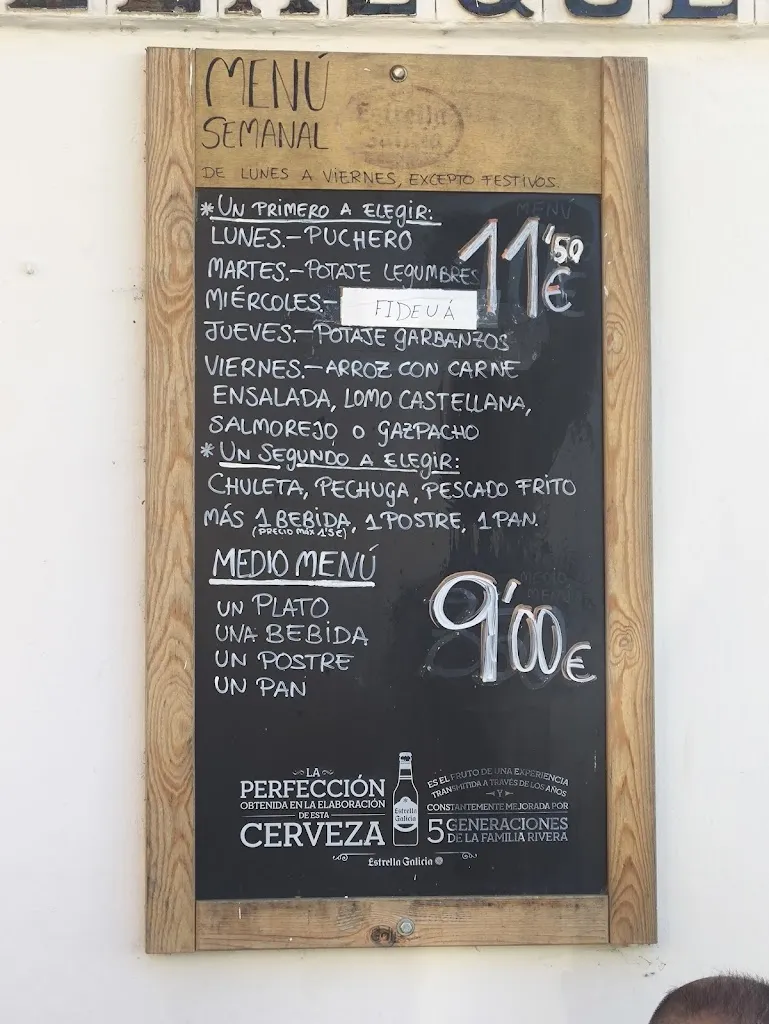 MENÚ
SEMANAL
Estrella
Galicia
DE LUNES A VIERNES, EXCEPTO FESTIVOS.
* UN PRIMERO A ELEGIR:
11'50 €
LUNES.- PUCHERO
MARTES.- POTAJE LEGUMBRES
MIÉRCOLES.- FIDEUÁ
JUEVES.- POTAJE GARBANZOS
VIERNES.- ARROZ CON CARNE
ENSALADA, LOMO CASTELLANA,
SALMOREJO O GAZPACHO
* UN SEGUNDO A ELEGIR:
CHULETA, PECHUGA, PESCADO FRITO
MÁS 1 BEBIDA, 1 POSTRE, 1 PAN.
(PRECIO MÁX 1'5€)
MEDIO MENÚ
9'00 €
UN PLATO
UNA BEBIDA
UN POSTRE
UN PAN
LA
PERFECCIÓN
OBTENIDA EN LA ELABORACIÓN
DE ESTA
CERVEZA
Estrella
Galicia
ES EL FRUTO DE UNA EXPERIENCIA
TRANSMITIDA A TRAVÉS DE LOS AÑOS
Y
CONSTANTEMENTE MEJORADA POR
5 GENERACIONES
DE LA FAMILIA RIVERA
Estrella Galicia